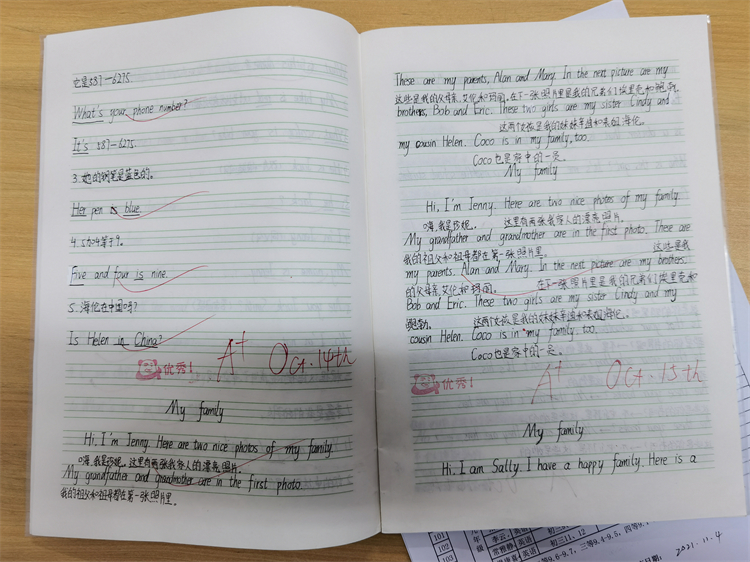 也是587-6275.
What's your phone number?
It's 587-6275.
3.她的钢笔是蓝色的。
Her pen is blue.
4.5加4等于9。
Five and four is nine.
5.海伦在中国吗?
Is Helen in China?
优秀! A+ Oct.14th
My family
Hi, I'm Jenny. Here are two nice photos of my family.
嗨,我是珍妮。这里有两张我家人的漂亮照片。
My grandfather and grandmother are in the first photo.
我的祖父和祖母都在第一张照片里。
These are my parents, Alan and Mary. In the next picture are my
这些是我的父母亲,艾伦和玛丽。在下一张照片里是我的兄弟们埃里克和鲍勃,
brothers, Bob and Eric. These two girls are my sister Cindy and
这两个女孩是我的妹妹辛迪和表姐海伦。
my cousin Helen. Coco is in my family, too.
Coco也是家中的一员。
My family
Hi, I'm Jenny. Here are two nice photos of my family.
嗨,我是珍妮。 这里有两张我家人的漂亮照片。
My grandfather and grandmother are in the first photo. These are
我的祖父和祖母都在第一张照片里。 这些是我
my parents, Alan and Mary. In the next picture are my brothers,
的父母亲,艾伦和玛丽。 在下一张照片里是我的兄弟们埃里克和
Bob and Eric. These two girls are my sister Cindy and my
鲍勃。 这两个女孩是我的妹妹辛迪和表姐海伦。
cousin Helen. Coco is in my family, too.
Coco也是家中的一员。
优秀! A+ Oct.15th
My family
Hi. I am Sally. I have a happy family. Here is a
101
102
103
年级
英语
初三11、12
2021.11.4